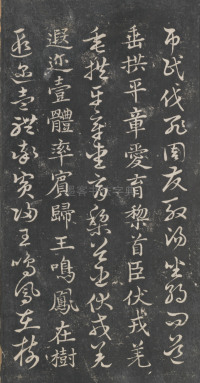 吊民伐罪周發殷湯坐朝問道
垂拱平章愛育黎首臣伏戎羌
垂拱平章愛育黎首臣伏戎羌
遐迩壹體率賓歸王鳴鳳在樹
遐迩壹體率賓歸王鳴鳳在樹